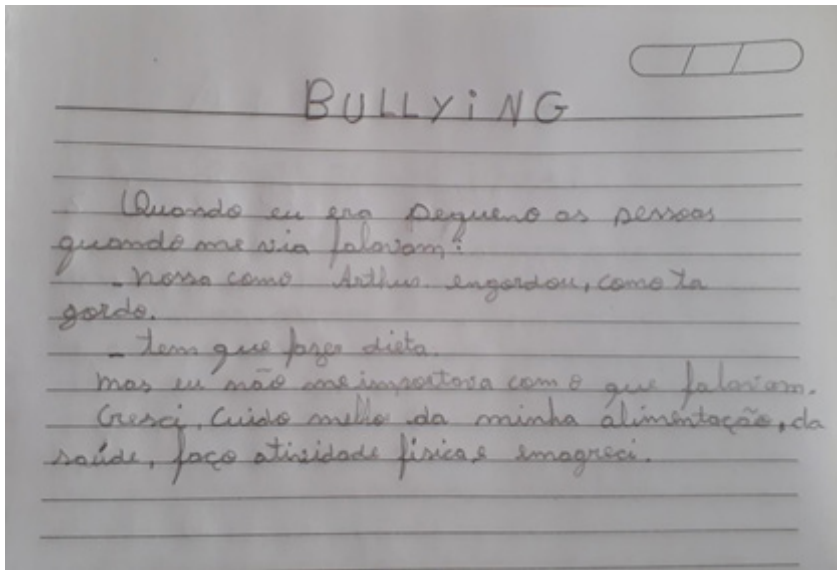 BULLYiNG
Quando eu era pequeno as pessoas
quando me via falavam:
- Nossa como Arthur engordou, como ta
gordo.
- tem que fazer dieta.
mas eu não me importava com o que falavam.
Cresci, Cuido mello da minha alimentação, da
saúde, faço atividade fisica e emagreci.